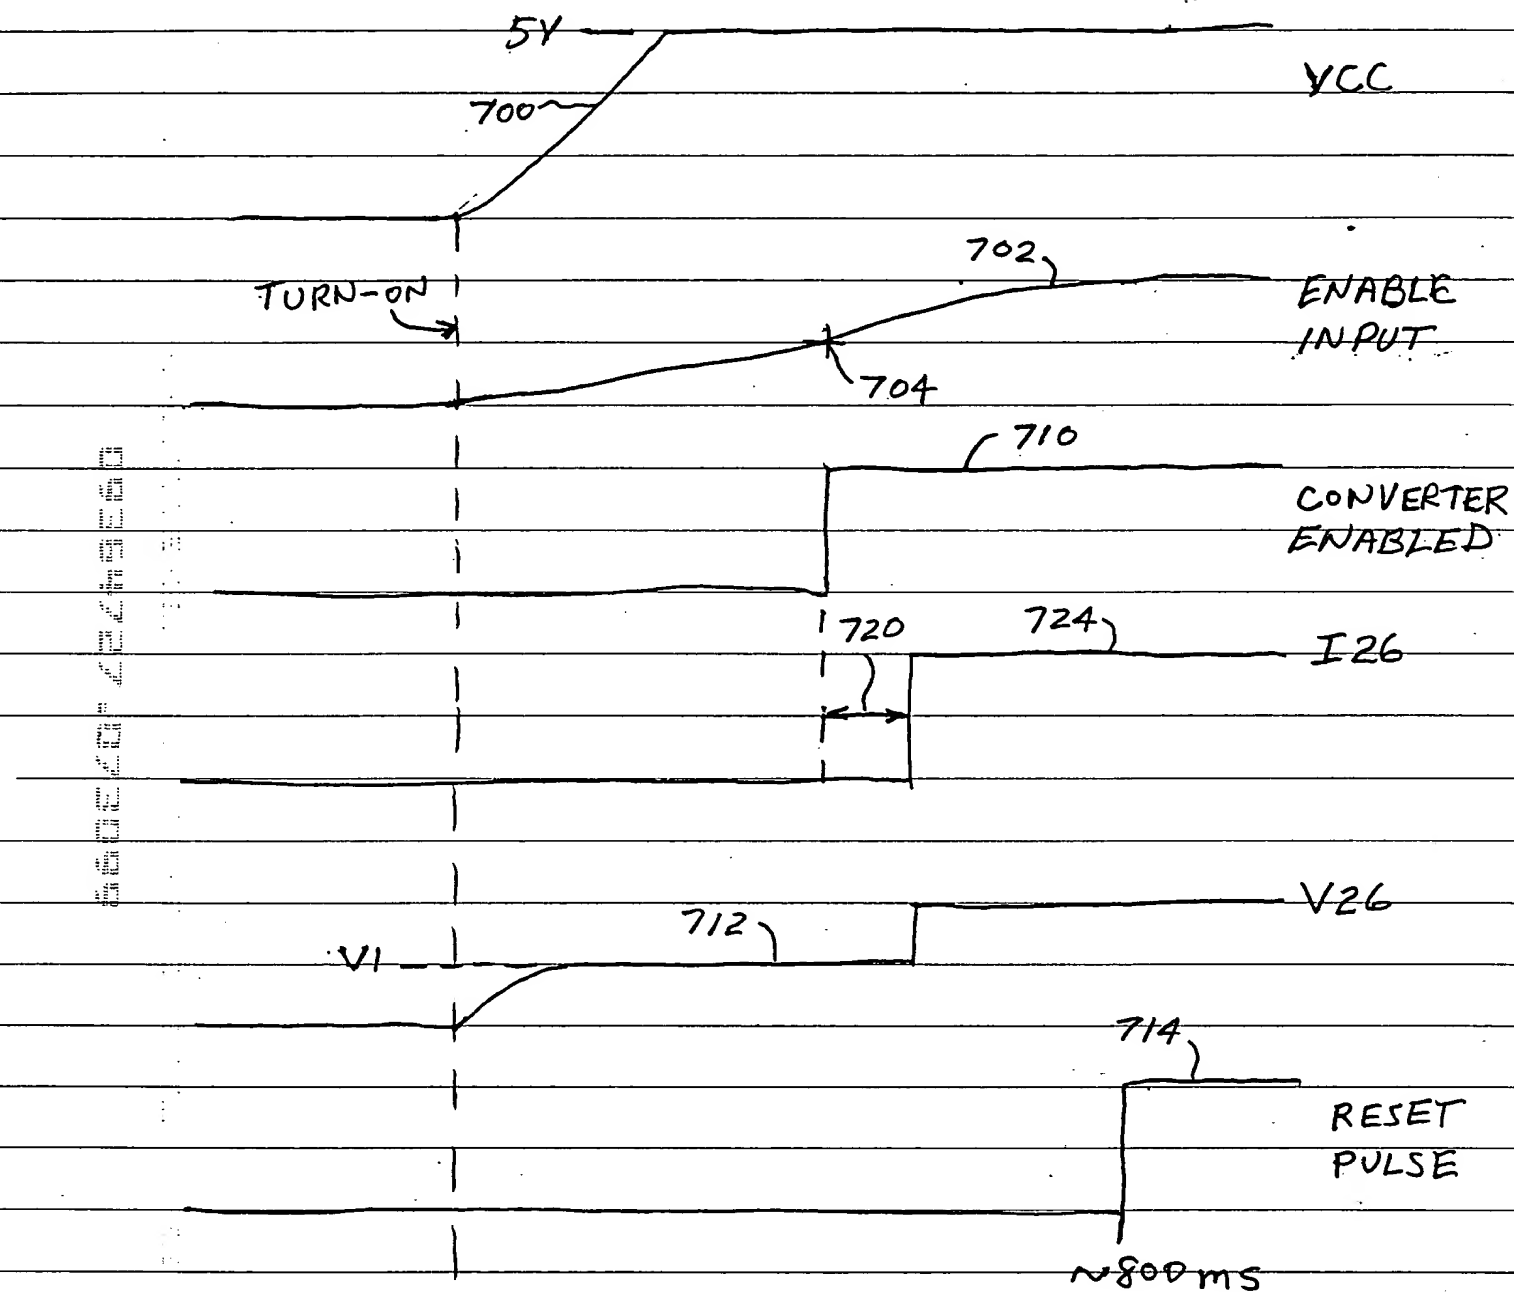 5V
VCC
700
702
TURN-ON
ENABLE
INPUT
704
710
CONVERTER
ENABLED
720
724
I26
712
V26
V1
714
RESET
PULSE
~800 ms